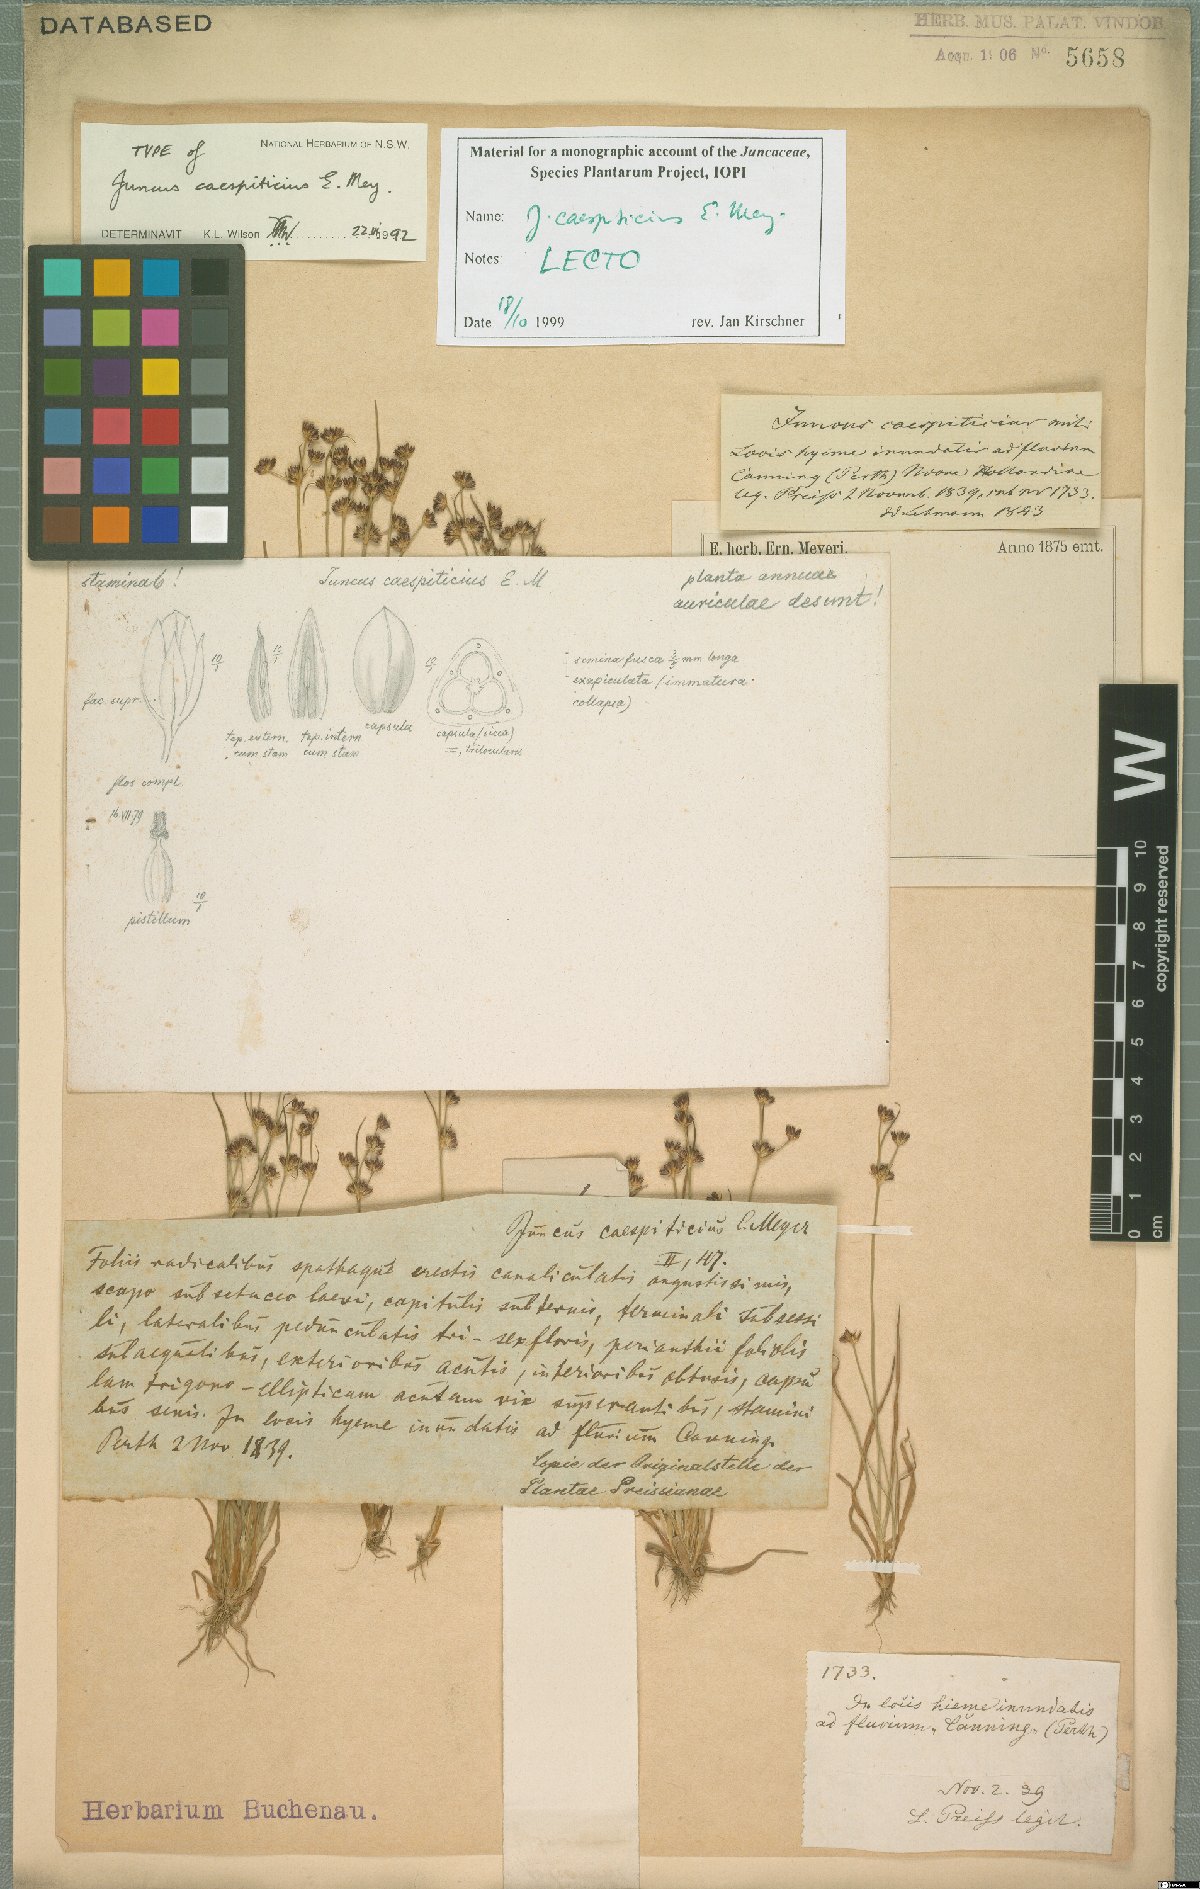 DATABASED
HERB. MUS. PALAT. VINDOB.
Acqu. 1906 No. 5658
NATIONAL HERBARIUM OF N.S.W.
TYPE of
Juncus caespiticius E. Mey.
DETERMINAVIT K.L. Wilson 1992
Material for a monographic account of the Juncaceae,
Species Plantarum Project, IOPI
Name: J. caespiticius E. Mey.
Notes: LECTO
Date 18/10 1999 rev. Jan Kirschner
Juncus caespiticius mihi
Locis hyeme inundatis ad fluvium
Canning (Perth) Novae Hollandiae
leg. Preiss 2 Novemb. 1839, sub nr 1733.
1843
E. herb. Ern. Meyeri. Anno 1875 emt.
stamina 6! Juncus caespiticius E. M planta annua
auriculae desunt!
semina fusca mm longa
exapiculata (immatura
collapsa)
fac. supr.
10/1
tep. extern. tep. intern capsula capsula (sicca)
cum stam cum stam trilocularis
flos compl.
16 VII 79
10/1
pistillum
Juncus caespiticius E. Meyer
II, 47.
Foliis radicalibus spathaque erectis canaliculatis angustissimis,
scapo subsetaceo laevi, capitulis subternis, terminali subsessi
li, lateralibus pedunculatis tri-sexfloris, perianthii foliolis
subaequalibus, exterioribus acutis, interioribus obtusis, capsu
lam trigono-ellipticam acutam vix superantibus, stamini
bus senis. In locis hyeme inundatis ad fluvium Canning.
Perth 2 Nov 1839.
Copie der Originalstelle der
Plantae Preissianae
1733.
In locis hieme inundatis
ad fluvium "Canning" (Perth)
Nov. 2. 39
L. Preiss legit.
Herbarium Buchenau.
W
0 1 2 3 4 5 6 7 8 9 10
cm
copyright reserved